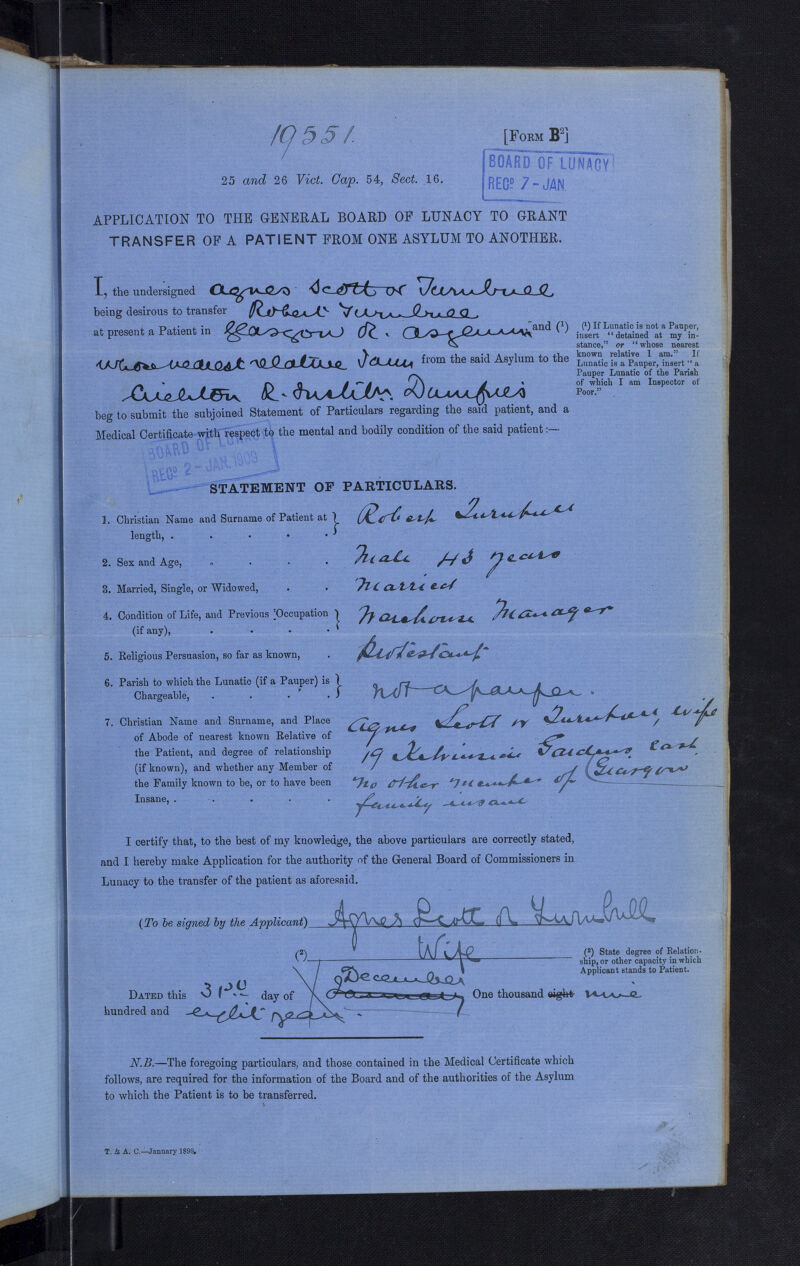 19551.
[FORM B²]
BOARD OF LUNACY
REGD 7-JAN
25 and 26 Vict. Cap. 54, Sect. 16.
APPLICATION TO THE GENERAL BOARD OF LUNACY TO GRANT
TRANSFER OF A PATIENT FROM ONE ASYLUM TO ANOTHER.
I, the undersigned Agnes Scott or Turnbull
being desirous to transfer Robert Turnbull
at present a Patient in Glasgow R. Asylum and (¹)
whose nearest relative I am from the said Asylum to the
Crichton R. Instith Dumfries
(¹) If Lunatic is not a Pauper,
insert "detained at my in-
stance," or "whose nearest
known relative I am." If
Lunatic is a Pauper, insert "a
Pauper Lunatic of the Parish
of which I am Inspector of
Poor."
beg to submit the subjoined Statement of Particulars regarding the said patient, and a
Medical Certificate with respect to the mental and bodily condition of the said patient:—
BOARD OF LUNACY
REGD 2-JAN.1909
STATEMENT OF PARTICULARS.
1. Christian Name and Surname of Patient at length, . Robert Turnbull
2. Sex and Age, Male 43 years
3. Married, Single, or Widowed, Married
4. Condition of Life, and Previous Occupation (if any), Warehouse Manager
5. Religious Persuasion, so far as known, Protestant
6. Parish to which the Lunatic (if a Pauper) is Chargeable, Not a pauper.
7. Christian Name and Surname, and Place Agnes Scott or Turnbull, wife
of Abode of nearest known Relative of
the Patient, and degree of relationship 19 Kelvinside Gardens East
(if known), and whether any Member of Glasgow
the Family known to be, or to have been No other member of
Insane, . family insane
I certify that, to the best of my knowledge, the above particulars are correctly stated,
and I hereby make Application for the authority of the General Board of Commissioners in
Lunacy to the transfer of the patient as aforesaid.
(To be signed by the Applicant) Agnes Scott or Turnbull
(²) Wife
(²) State degree of Relation-
ship, or other capacity in which
Applicant stands to Patient.
December
DATED this 31st day of January One thousand eight nine
hundred and eight years.
N.B.—The foregoing particulars, and those contained in the Medical Certificate which
follows, are required for the information of the Board and of the authorities of the Asylum
to which the Patient is to be transferred.
T. & A. C.—January 1898.